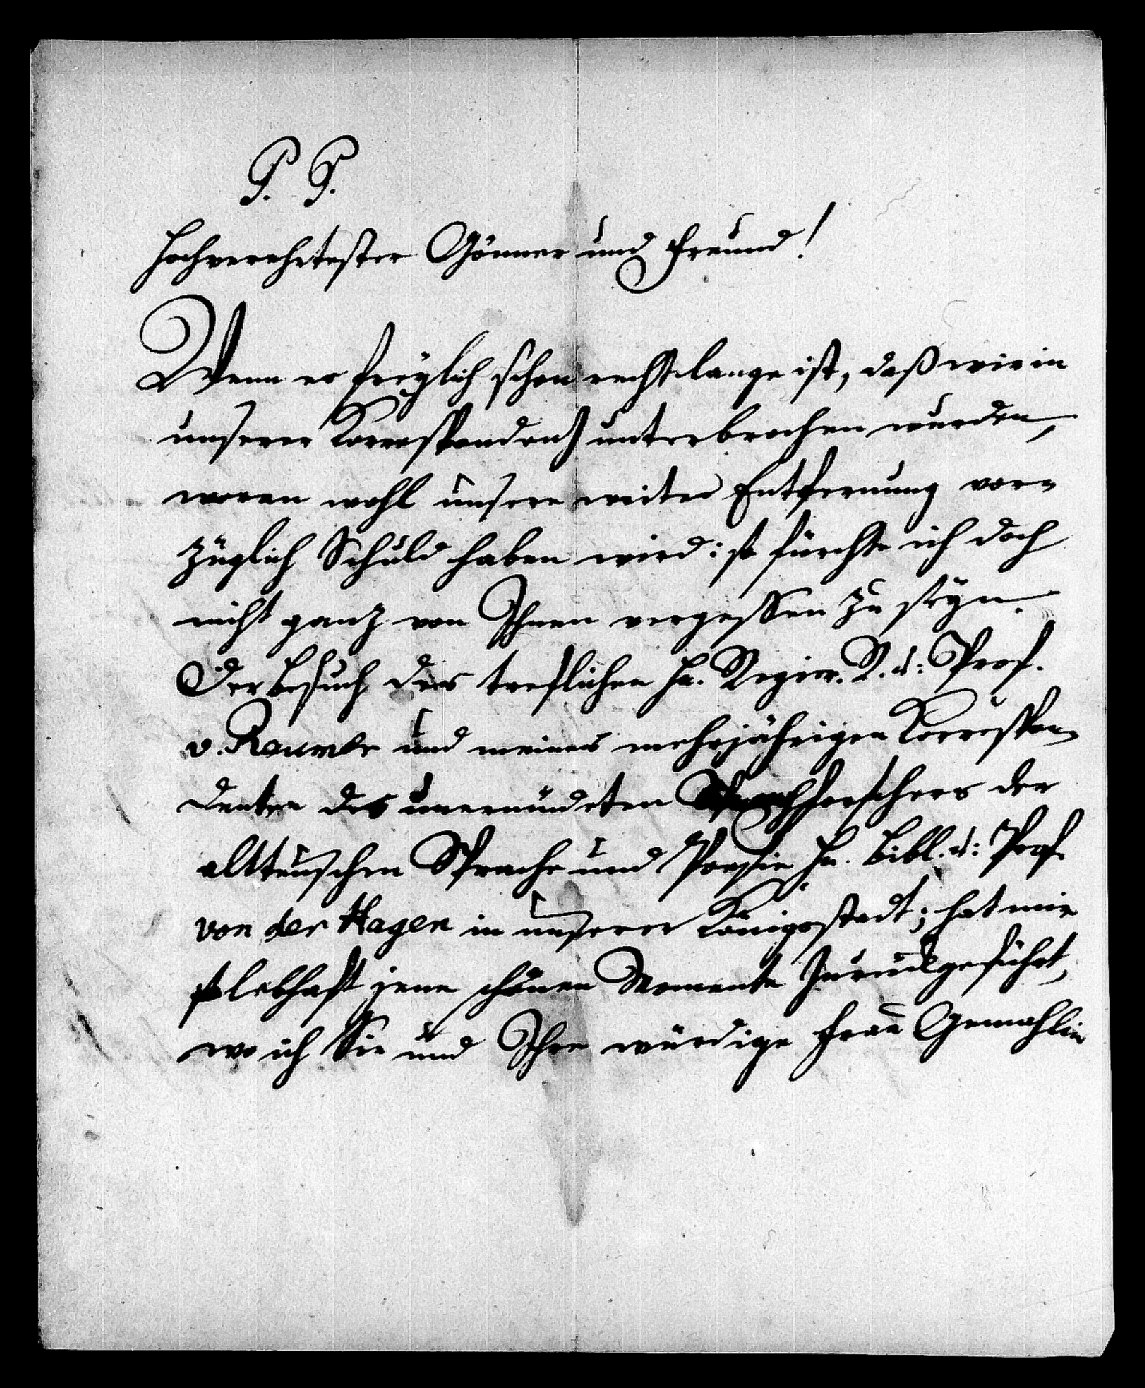 P. P.
Hochverehrtester Gönner und Freund!
Wenn es freÿlich schon recht lange ist, daß wir in
unserer Korrespondenz unterbrochen wurden,
woran wohl unsere weiter Entfernung vor¬
züglich Schuld haben wird: so fürchte ich doch
nicht ganz von Ihnen vergessen zu seÿn.
Der Besuch des treflichen Hn. Regier. R. u: Prof.
v. Raumer und meines mehrjährigen Korrespon¬
denten des unermüdeten Sprachforschers der
altteuschen Sprache und Poesie Hn. Bibl. u: Prof.
von der Hagen in unserer Königsstadt; hat mir
so lebhaft jene schönen Momente zurückgeführt,
wo ich Sie und Ihre würdige Frau Gemahlin